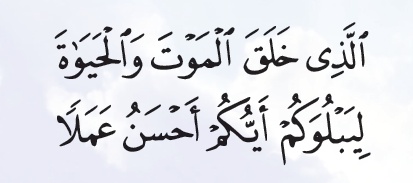 ٱلَّذِى خَلَقَ ٱلْمَوْتَ وَٱلْحَيَوٰةَ
لِيَبْلُوَكُمْ أَيُّكُمْ أَحْسَنُ عَمَلًا